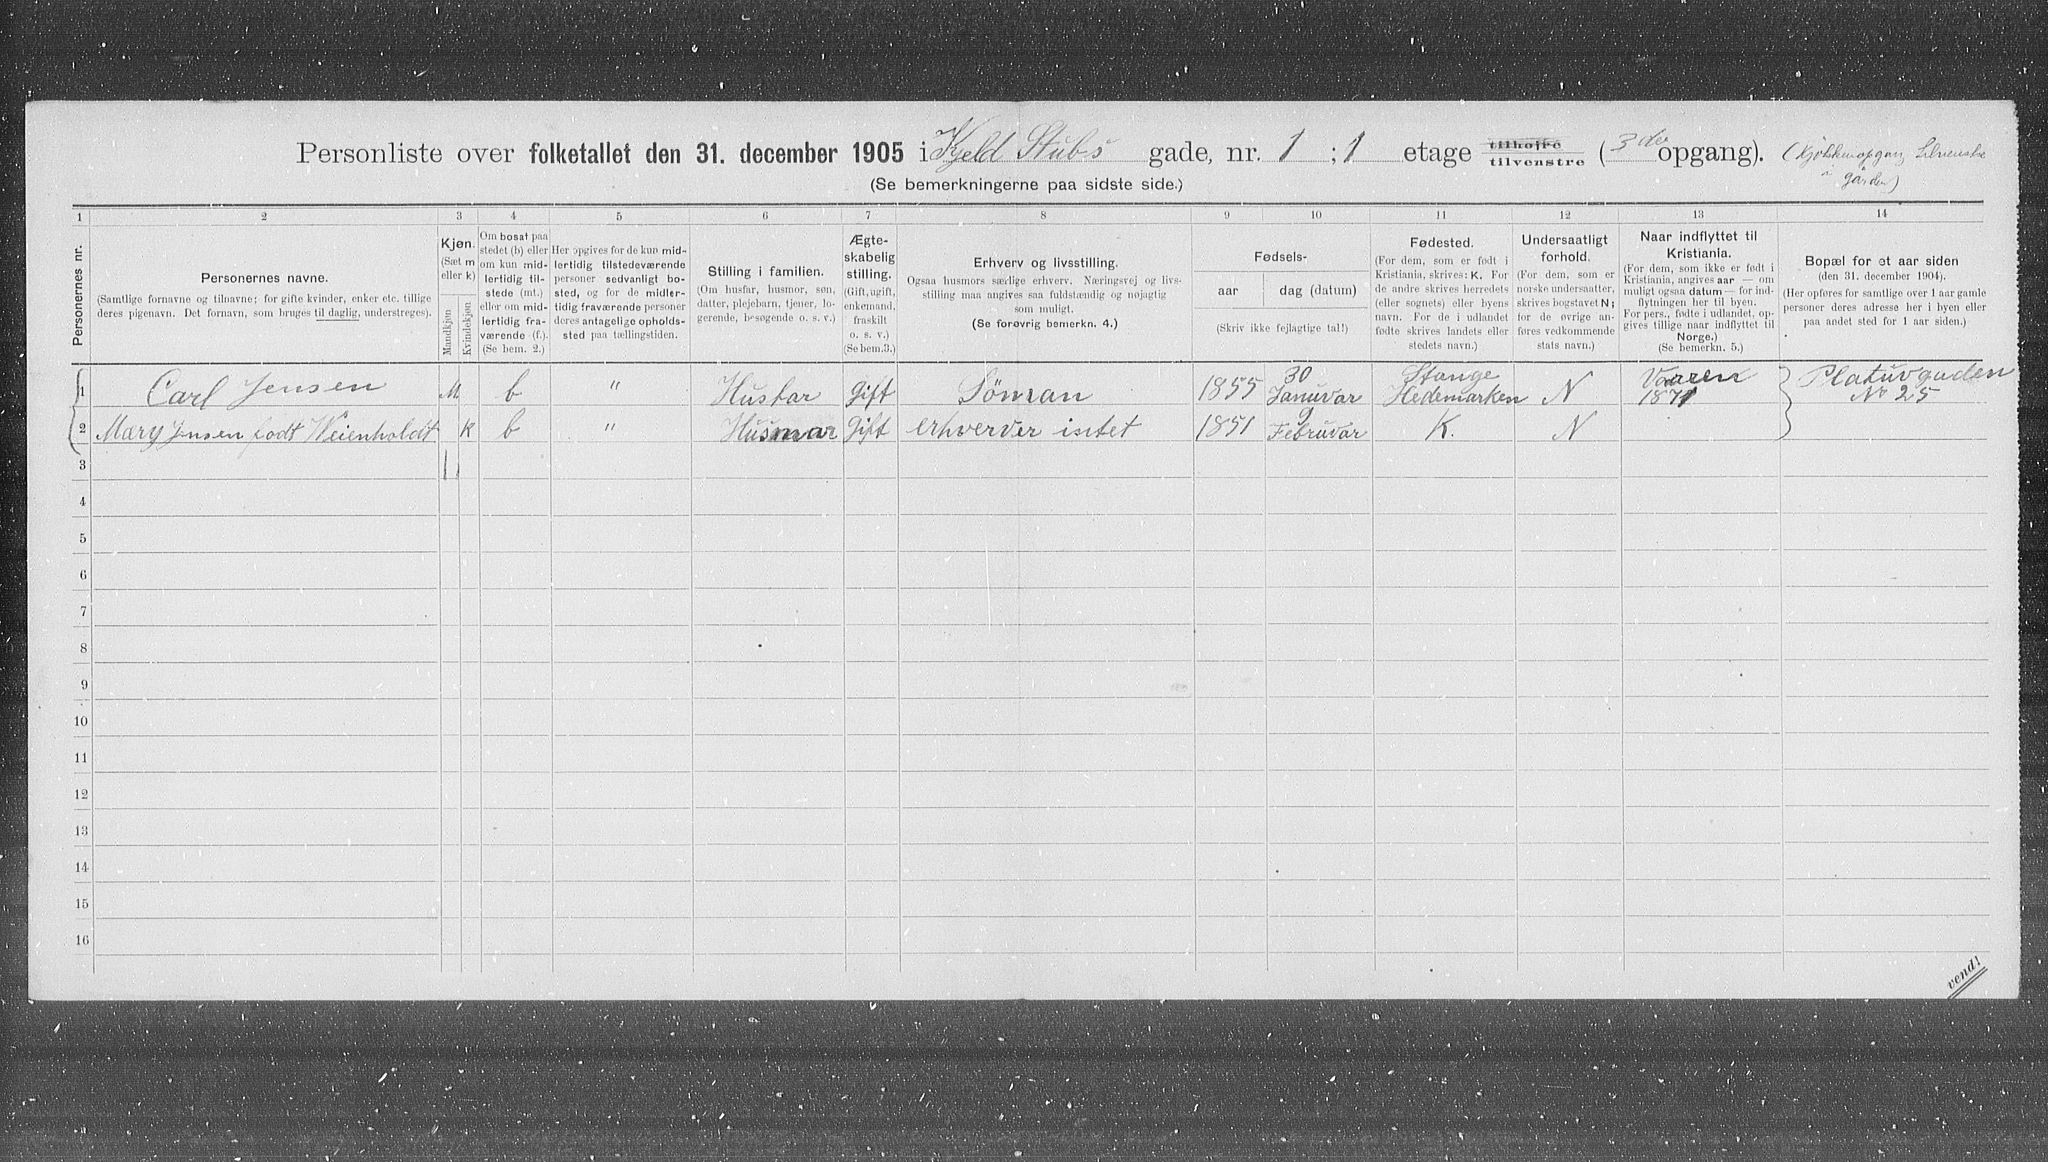 Personliste over folketallet den 31. december 1905 i Kjeld Stubs gade, nr. 1 ; 1 etage tilhøjre tilvenstre ( 3die opgang). (Kjøkkenopgang tilvenstre
i gården)
(Se bemerkningerne paa sidste side.)
1 2 3 4 5 6 7 8 9 10 11 12 13 14
Personernes nr.
Personernes navne.
(Samtlige fornavne og tilnavne; for gifte kvinder, enker etc. tillige
deres pigenavn. Det fornavn, som bruges til daglig, understreges).
Kjøn.
(Sæt m
eller k)
Mandkjøn
Kvindekjøn
Om bosat paa
stedet (b) eller
om kun mid-
lertidig til-
stede (mt.)
eller om mid-
lertidig fra-
værende (f.).
(Se bem. 2.)
Her opgives for de kun mid-
lertidig tilstedeværende
personer sedvanlig bo-
sted, og for de midler-
tidig fraværende personer
deres antagelige opholds-
sted paa tællingstiden.
Stilling i familien.
(Om husfar, husmor, søn,
datter, plejebarn, tjener, lo-
gerende, besøgende o. s. v.)
Ægte-
skabelig
stilling.
(Gift, ugift,
enkemand,
fraskilt
o. s. v.)
(Se bem. 3.)
Erhverv og livsstilling.
Ogsaa husmors særlige erhverv. Næringsvej og livs-
stilling maa angives saa fuldstændig og nøjagtig
som muligt.
(Se forøvrig bemerkn. 4.)
Fødsels-
aar
dag (datum)
(Skriv ikke fejlagtige tal!)
Fødested.
(For dem, som er født i
Kristiania, skrives: K. For
de andre skrives herredets
(eller sognets) eller byens
navn. For de i udlandet
fødte skrives landets eller
stedets navn.)
Undersaatligt
forhold.
(For dem, som er
norske undersaatter,
skrives bogstavet N;
for de øvrige an-
føres vedkommende
stats navn.)
Naar indflyttet til
Kristiania.
(For dem, som ikke er født i
Kristiania, angives aar — om
muligt ogsaa datum — for ind-
flytningen her til byen.
For pers., fødte i udlandet, op-
gives tillige naar indflyttet til
Norge.)
(Se bemerkn. 5.)
Bopæl for et aar siden
(den 31. december 1904).
(Her opføres for samtlige over 1 aar gamle
personer deres adresse her i byen eller
paa andet sted for 1 aar siden.)
1 Carl Jensen M b " Husfar Gift Söman 1855 30 Januvar Stange Hedemarken N Vaaren 1871 Platuvgaden No 25
2 Mary Jensen fodt Weienholdt k b " Husmor Gift erhverver intet 1851 9 Februvar K. N
3
4
5
6
7
8
9
10
11
12
13
14
15
16
vend!